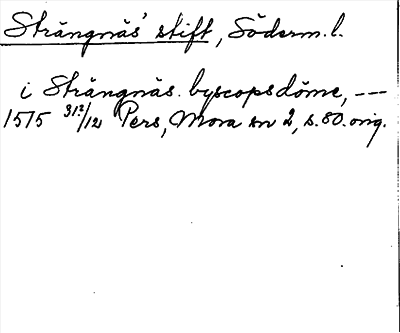 Strängnäs' stift, Söderm.l.
i Strängnäs. byscopsdöme, ---
1515 31?/12 Pers, Mora sn 2, s.80.orig.